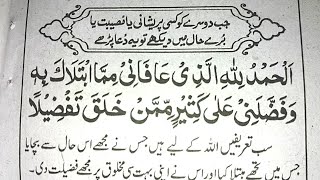 جب دوسرے کو کسی پریشانی یا مصیبت یا
بُرے حال میں دیکھے تو یہ دُعا پڑھے
اَلْحَمْدُ لِلّٰهِ الَّذِیْ عَافَانِیْ مِمَّا ابْتَلَاكَ بِهٖ
وَفَضَّلَنِیْ عَلٰی كَثِیْرٍ مِّمَّنْ خَلَقَ تَفْضِیْلًا
سب تعریفیں اللہ کے لیے ہیں جس نے مجھے اس حال سے بچایا
جس میں تجھے مبتلا کیا اور اس نے اپنی بہت سی مخلوق پر مجھے فضیلت دی۔